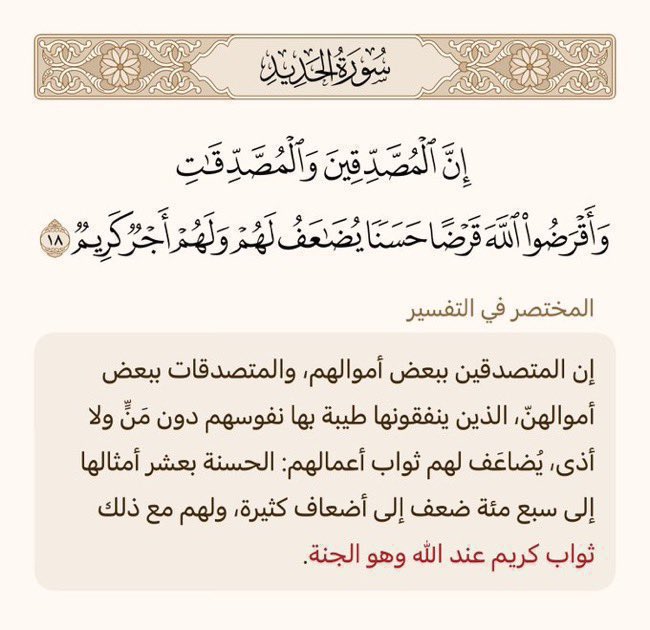 سُورَةُ الحَدِيدِ
إِنَّ ٱلۡمُصَّدِّقِينَ وَٱلۡمُصَّدِّقَٰتِ
وَأَقۡرَضُواْ ٱللَّهَ قَرۡضًا حَسَنٗا يُضَٰعَفُ لَهُمۡ وَلَهُمۡ أَجۡرٞ كَرِيمٞ ١٨
المختصر في التفسير
إن المتصدقين ببعض أموالهم، والمتصدقات ببعض
أموالهنّ، الذين ينفقونها طيبة بها نفوسهم دون مَنٍّ ولا
أذى، يُضاعَف لهم ثواب أعمالهم: الحسنة بعشر أمثالها
إلى سبع مئة ضعف إلى أضعاف كثيرة، ولهم مع ذلك
ثواب كريم عند الله وهو الجنة.